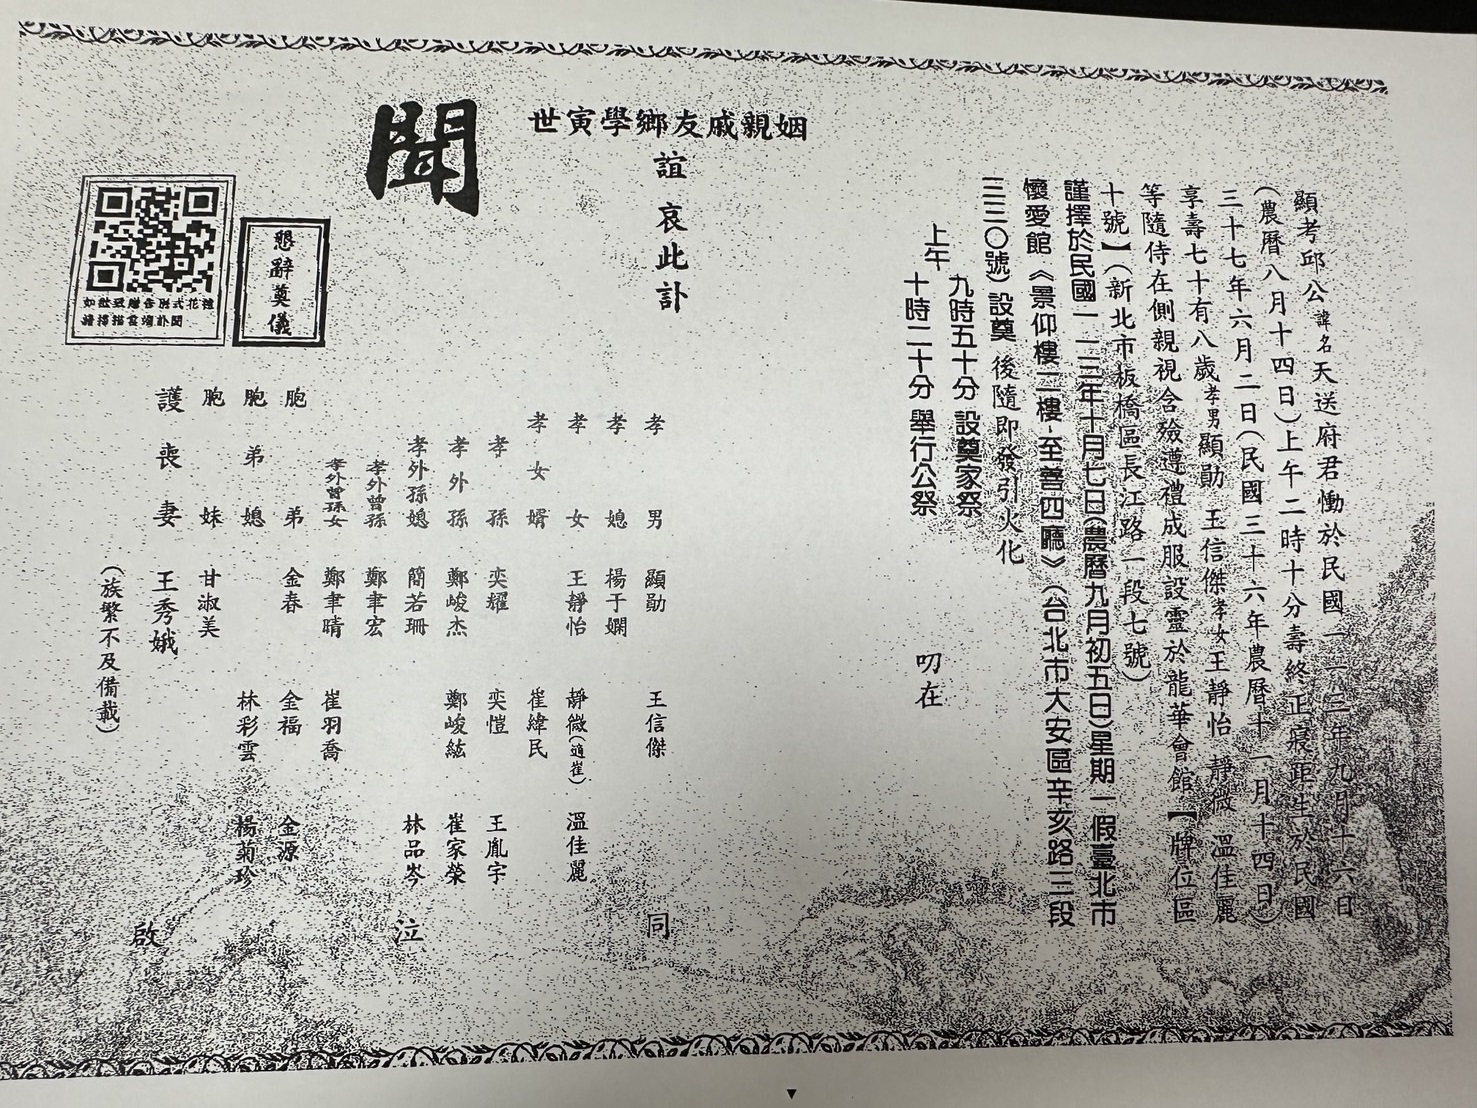 顯考邱公諱名天送府君慟於民國一一三年九月十六日
(農曆八月十四日)上午二時十分壽終正寢距生於民國
三十七年六月二日(民國三十六年農曆十一月十四日)
享壽七十有八歲孝男顯勛 王信傑孝女王靜怡 靜微 溫佳麗
等隨侍在側親視含殮遵禮成服設靈於龍華會館【牌位區
十號】(新北市板橋區長江路一段七號)
謹擇於民國一一三年十月七日(農曆九月初五日)星期一假臺北市
懷愛館《景仰樓二樓-至善四廳》(台北市大安區辛亥路三段
三三〇號)設奠 後隨即發引火化
上午
九時五十分 設奠家祭
十時二十分 舉行公祭
叨在
姻親戚友鄉學寅世
誼 哀此訃
聞
孝男 顯勛 王信傑
孝媳 楊于嫻
孝女 王靜怡 靜微(適崔) 溫佳麗
孝女婿 崔緯民
孝孫 奕耀 奕愷 王胤宇
孝外孫 鄭峻杰 鄭峻紘 崔家榮
孝外孫媳 簡若珊 林品岑
孝外曾孫 鄭聿宏
孝外曾孫女 鄭聿晴 崔羽喬
胞弟 金春 金福 金源
胞弟媳 林彩雲 楊菊珍
胞妹 甘淑美
護喪妻 王秀娥
(族繁不及備載)
同 泣 啟
懇辭奠儀
如欲致贈告別式花禮
請掃描雲端訃聞